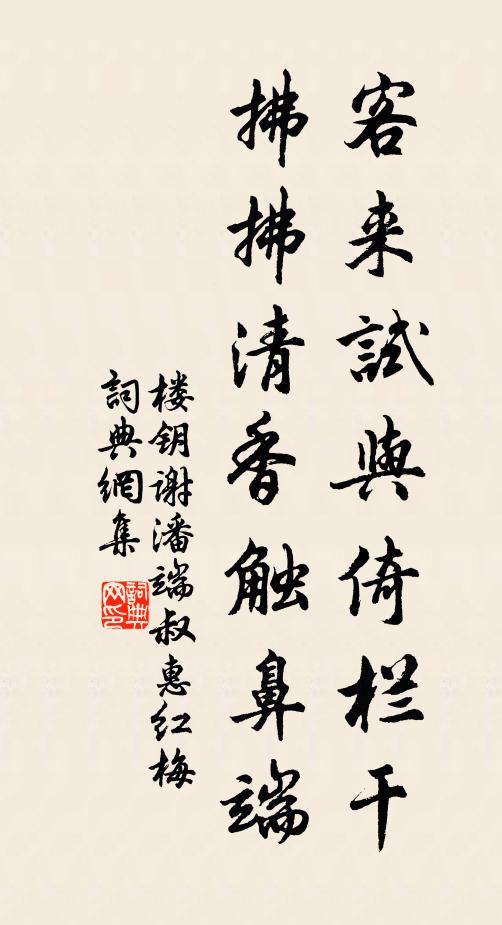 客来試與倚栏干
拂拂清香触鼻端
楼钥谢潘端叔惠红梅
詞典網集
詞典網印